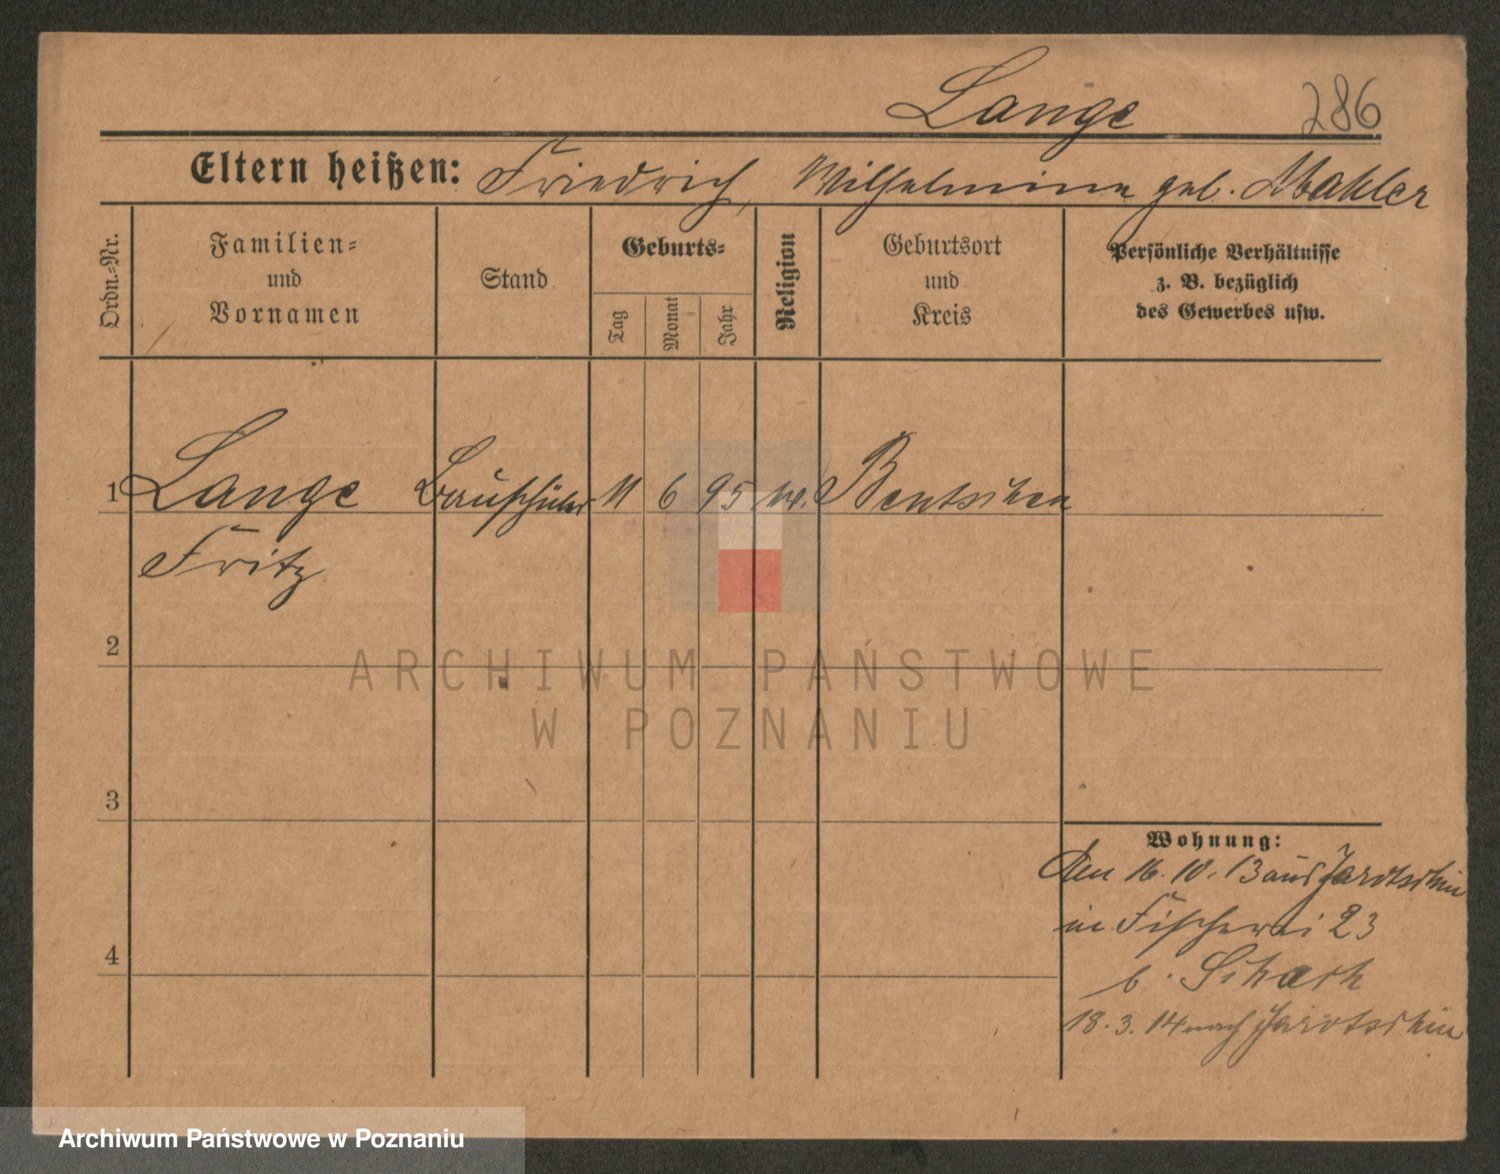 Lange 286
Eltern heißen: Friedrich, Wilhelmine geb. Mahler
Ordn.-Nr.
Familien-
und
Vornamen
Stand
Geburts-
Tag
Monat
Jahr
Religion
Geburtsort
und
Kreis
Persönliche Verhältnisse
z. B. bezüglich
des Gewerbes usw.
1 Lange Bauschüler 11 6 95 Bentschen
Fritz
2
ARCHIWUM PAŃSTWOWE
W POZNANIU
3
Wohnung:
Am 16. 10. 13 aus Jarotschin
in Fischerei 23
4
b.
18. 3. 14 nach Jarotschin
Archiwum Państwowe w Poznaniu